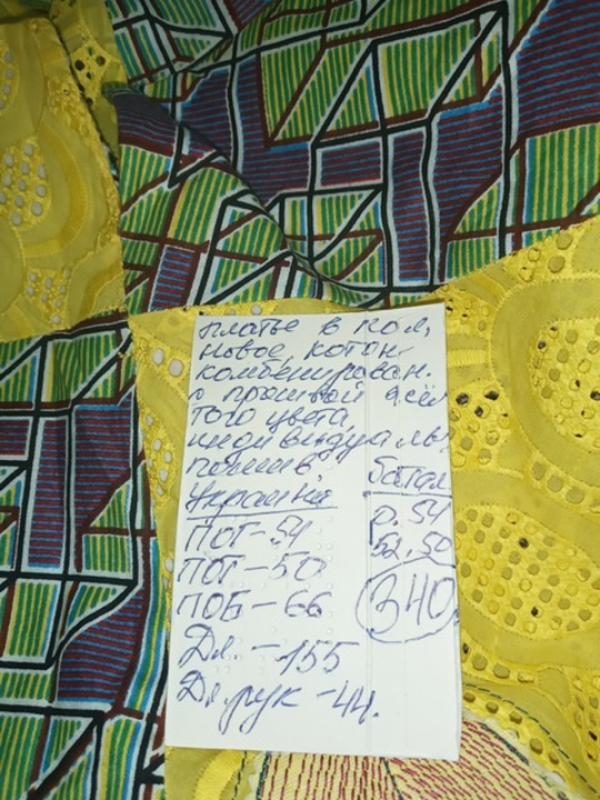 платье в пол,
новое, котон
комбенирован.
с прошвой жёл
того цвета,
индивидуаль
пошив,
Украина
Батал
ПОГ-54
р. 54
52, 50
ПОТ-50
340
ПОБ-66
Дл. -155
Дл. рук -44.